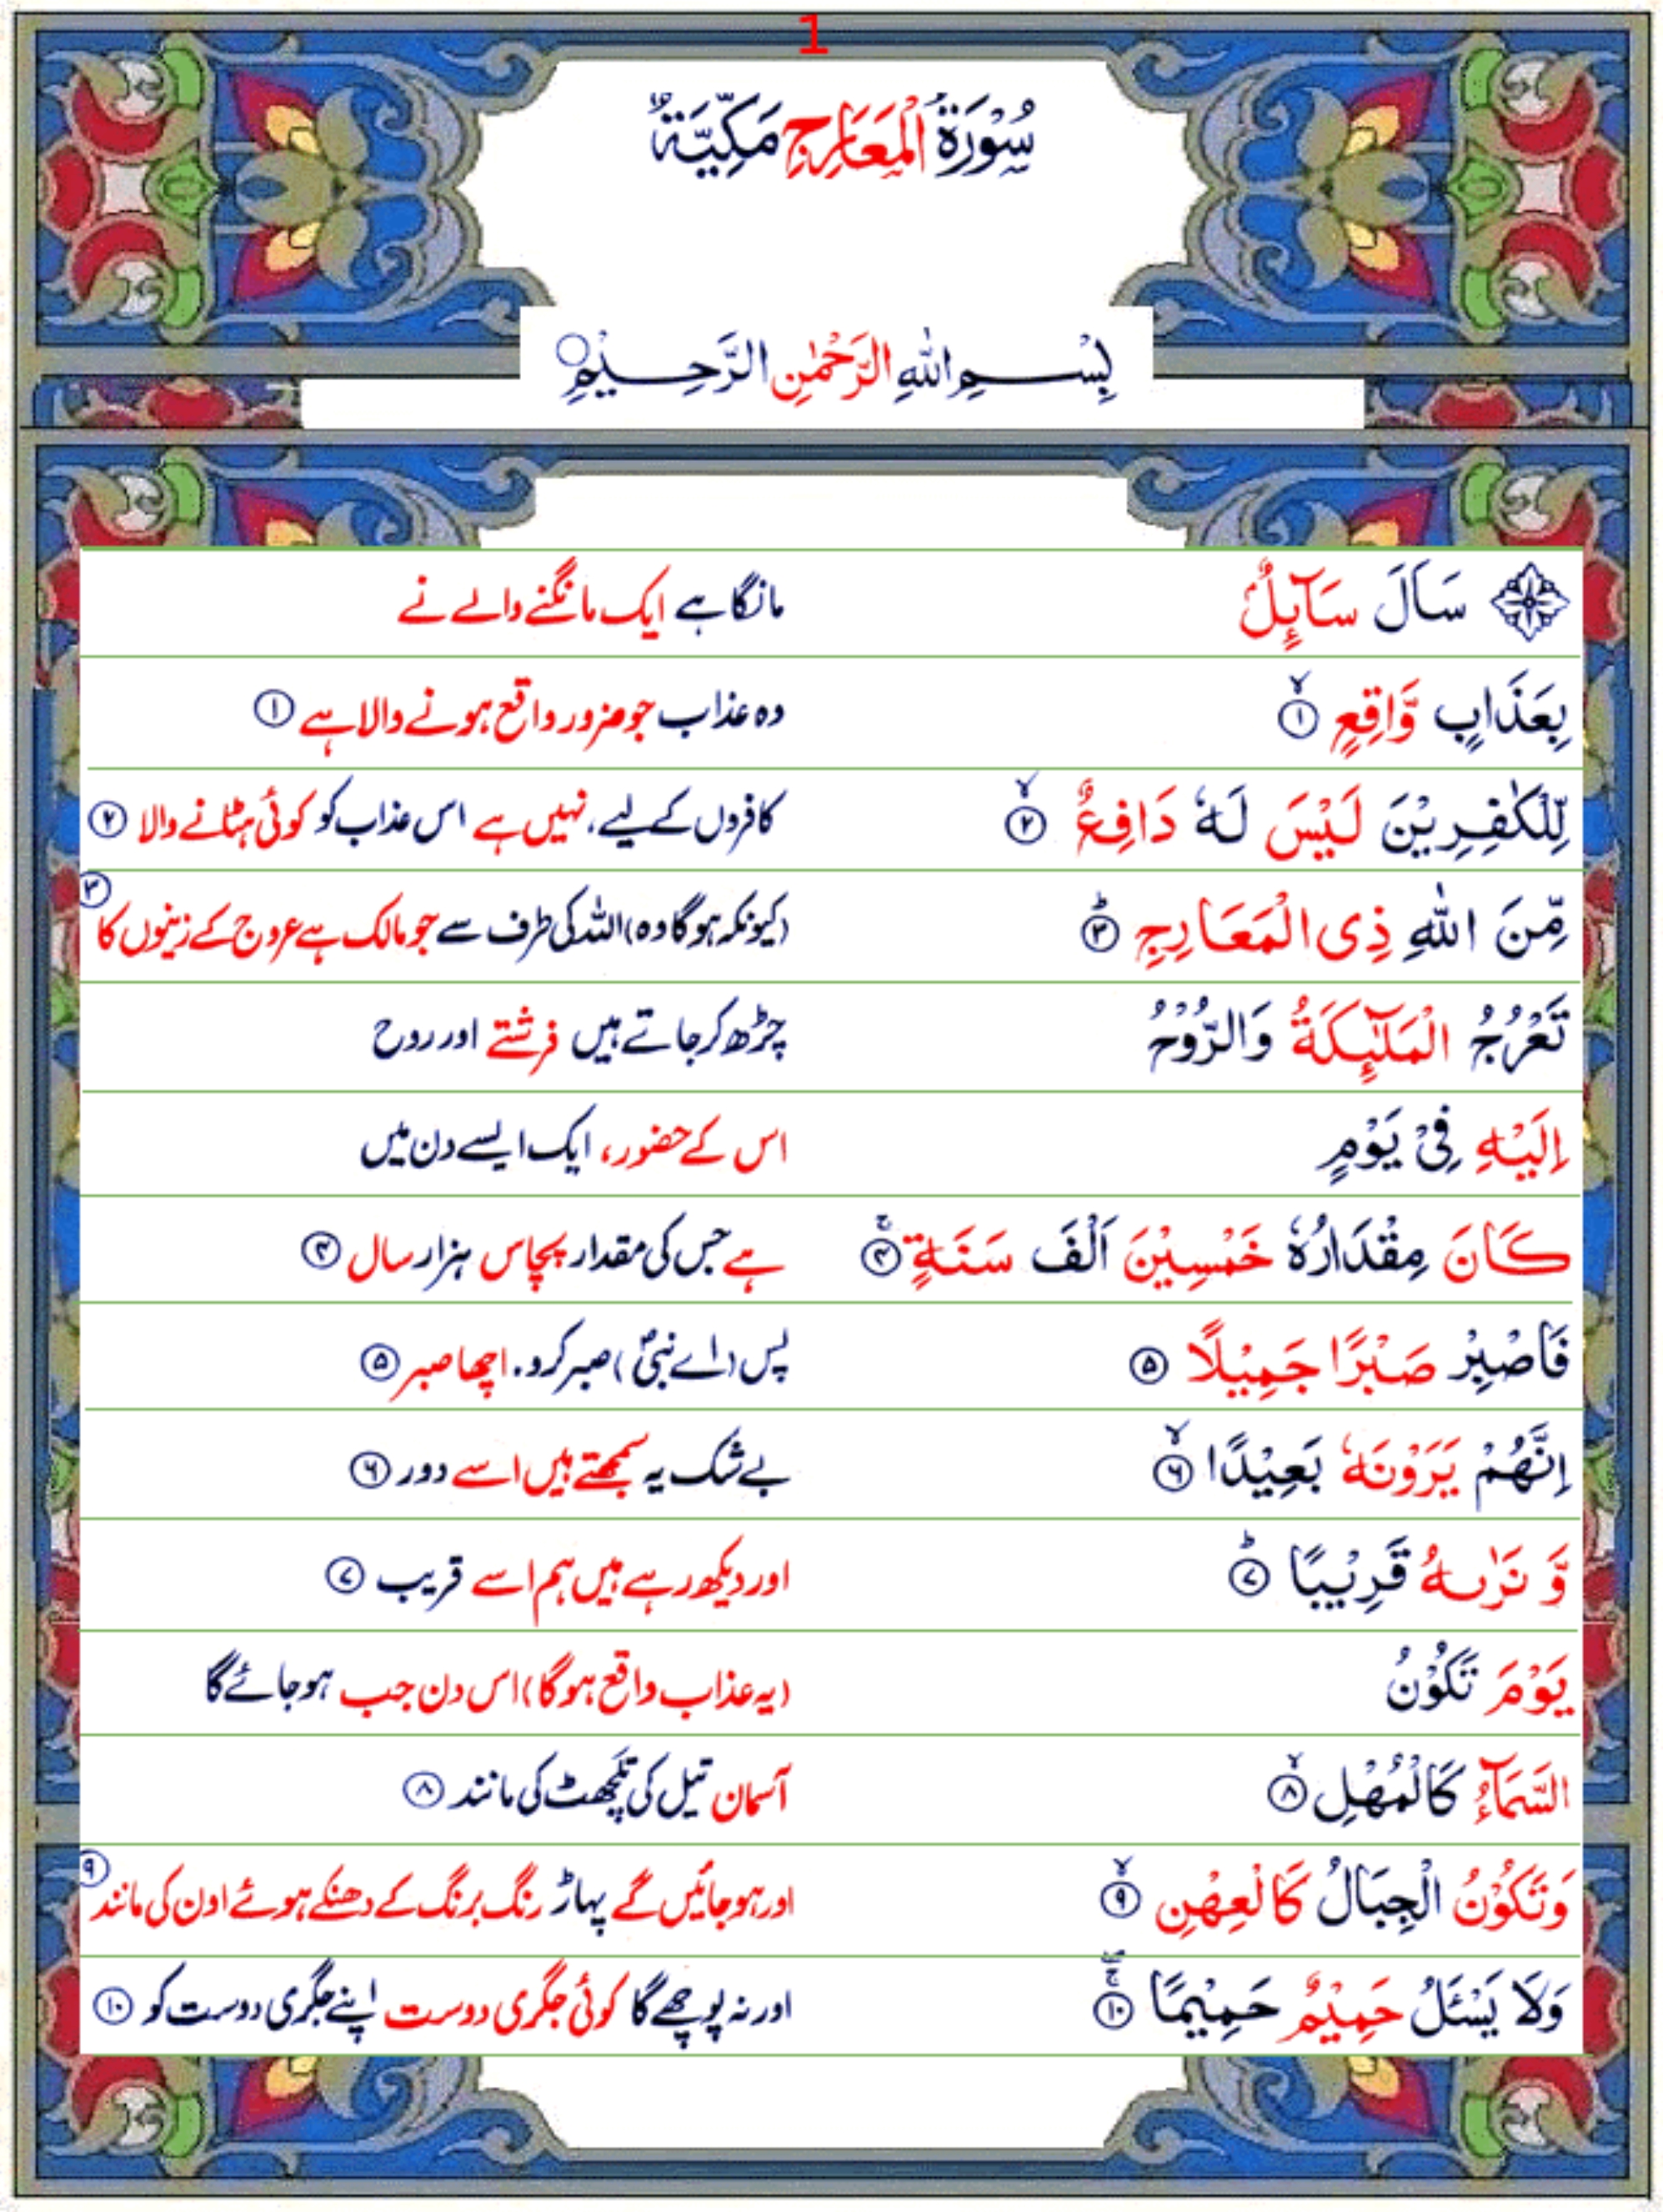 1
سُوْرَةُ الْمَعَارِجِ مَكِّيَّةٌ
بِسْمِ اللّٰهِ الرَّحْمٰنِ الرَّحِيْمِ
سَاَلَ سَآئِلٌۢ مانگا ہے ایک مانگنے والے نے
بِعَذَابٍ وَّاقِعٍ ۙ‏ ﴿۱﴾ وہ عذاب جو ضرور واقع ہونے والا ہے ﴿۱﴾
لِّلْكٰفِرِيْنَ لَيْسَ لَهٗ دَافِعٌ ۙ‏ ﴿۲﴾ کافروں کے لیے، نہیں ہے اس عذاب کو کوئی ہٹانے والا ﴿۲﴾
مِّنَ اللّٰهِ ذِى الْمَعَارِجِ ؕ‏ ﴿۳﴾ (کیونکہ ہوگا وہ) اللہ کی طرف سے جو مالک ہے عروج کے زینوں کا ﴿۳﴾
تَعْرُجُ الْمَلٰٓئِكَةُ وَالرُّوْحُ چڑھ کر جاتے ہیں فرشتے اور روح
اِلَيْهِ فِىْ يَوْمٍ اس کے حضور، ایک ایسے دن میں
كَانَ مِقْدَارُهٗ خَمْسِيْنَ اَلْفَ سَنَةٍ ۚ‏ ﴿۴﴾ ہے جس کی مقدار پچاس ہزار سال ﴿۴﴾
فَاصْبِرْ صَبْرًا جَمِيْلًا ﴿۵﴾ پس (اے نبیؐ) صبر کرو، اچھا صبر ﴿۵﴾
اِنَّهُمْ يَرَوْنَهٗ بَعِيْدًا ۙ‏ ﴿۶﴾ بے شک یہ سمجھتے ہیں اسے دور ﴿۶﴾
وَّ نَرٰىهُ قَرِيْبًا ؕ‏ ﴿۷﴾ اور دیکھ رہے ہیں ہم اسے قریب ﴿۷﴾
يَوْمَ تَكُوْنُ (یہ عذاب واقع ہوگا) اس دن جب ہوجائے گا
السَّمَآءُ كَالْمُهْلِ ۙ‏ ﴿۸﴾ آسمان تیل کی تلچھٹ کی مانند ﴿۸﴾
وَتَكُوْنُ الْجِبَالُ كَالْعِهْنِ ۙ‏ ﴿۹﴾ اور ہوجائیں گے پہاڑ رنگ برنگ کے دھنکے ہوئے اون کی مانند ﴿۹﴾
وَلَا يَسْئَلُ حَمِيْمٌ حَمِيْمًا ۚۖ‏ ﴿۱۰﴾ اور نہ پوچھے گا کوئی جگری دوست اپنے جگری دوست کو ﴿۱۰﴾